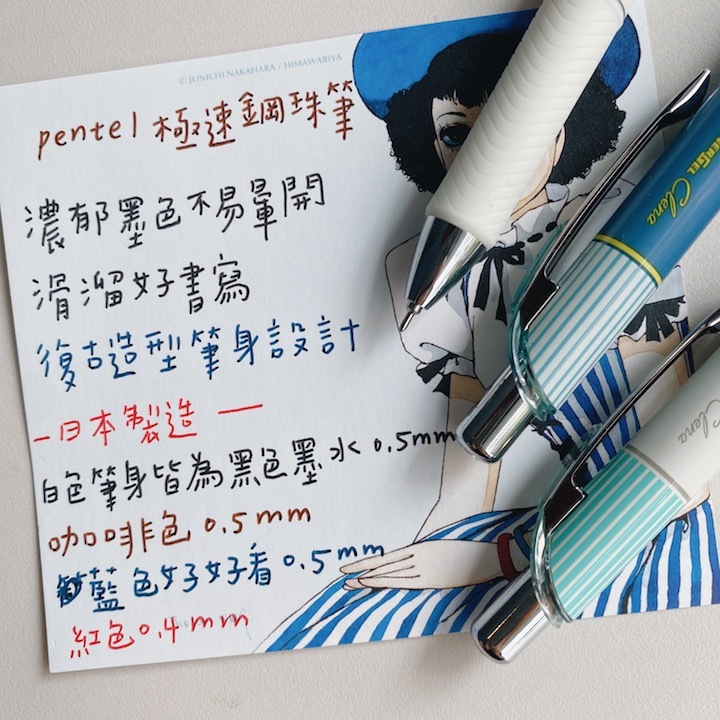 © JUNICHI NAKAHARA / HIMAWARIYA
pentel 極速鋼珠筆
濃郁墨色不易暈開
滑溜好書寫
復古造型筆身設計
-日本製造 —
白色筆身皆為黑色墨水 0.5mm
咖啡色 0.5mm
藍色好好看 0.5mm
紅色 0.4mm
ERGEL Clena
Clena